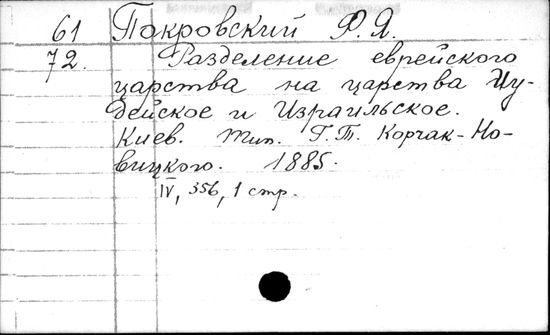 61 Покровский Ф. Я.
72. Разделение еврейского
царства на царства Иу-
дейское и Израильское.
Киев. Тип. Г. Т. Корчак-Но-
вицкого. 1885.
IV, 356, 1 стр.